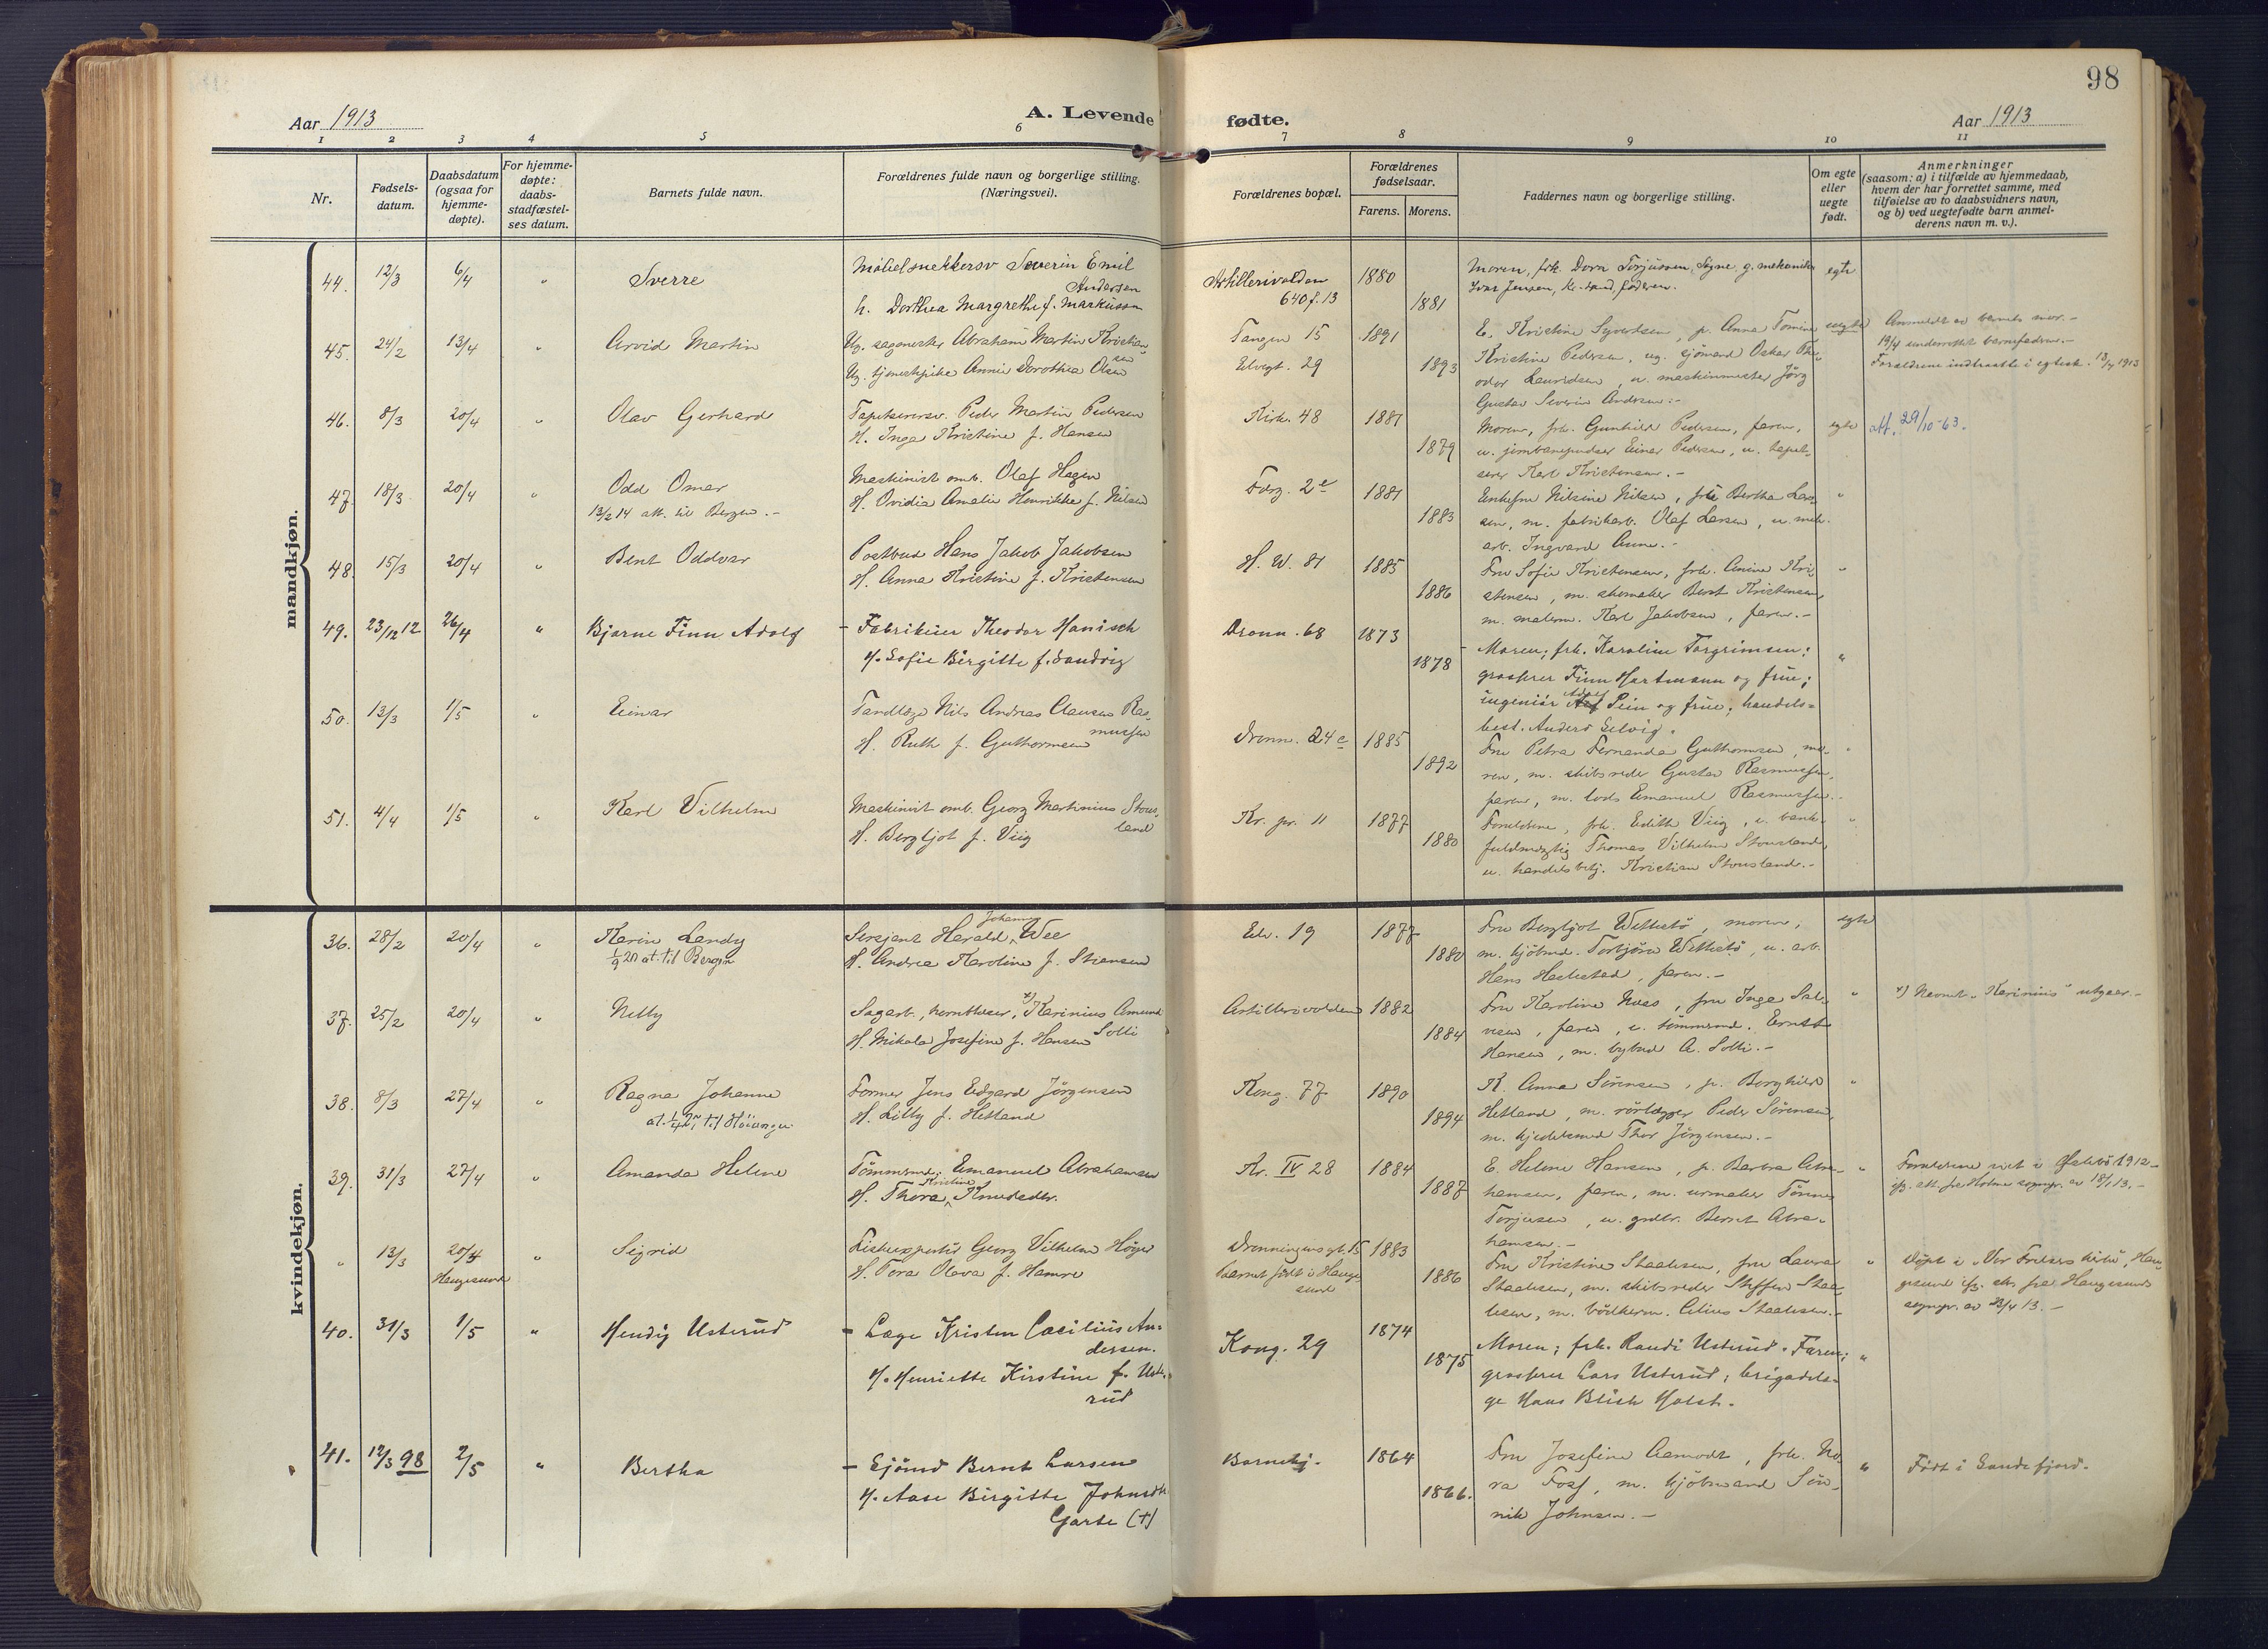 98
Aar 1913
A. Levende
fødte.
Aar 1913
1 2 3 4 5 6 7 8 9 10 11
Nr.
Fødsels-
datum.
Daabsdatum
(ogsaa for
hjemme-
døpte).
For hjemme-
døpte:
daabs-
stadfæstel-
ses datum.
Barnets fulde navn.
Forældrenes fulde navn og borgerlige stilling.
(Næringsvei).
Forældrenes bopæl.
Forældrenes
fødselsaar.
Farens. Morens.
Faddernes navn og borgerlige stilling.
Om egte
eller
uegte
født.
Anmerkninger
(saasom: a) i tilfælde av hjemmedaab,
hvem der har forrettet samme, med
tilføielse av to daabsvidners navn,
og b) ved uegtefødte barn anmel-
derens navn m. v.).
mandkjøn.
44. 12/3 6/4 " Sverre
Møbelsnekkersv Severin Emil
Andersen
h. Dorthea Margrethe f. Markussen
Artillerivolden
640 f. 13
1880
1881
Moren, frk. Dora Torjussen, Signe, g. mekaniker
Ivar Jensen, Kr.sand, faderen.
egte
45. 24/2 13/4 " Arvid Martin
Ug. sagmester Abraham Martin Kristian-
sen
Ug. tjenestpike Anna Dorothea Olsen
Tangen 15
Elvegt. 29
1891
1893
E. Kristine Syvertsen, p. Anna Tomine
Kristine Pedersen, ug. sjömand Oskar The-
odor Lauridsen, u. maskinmester Jörg
Gustav Severin Andersen.-
uegte
Anmeldt av barnets mor.-
19/4 underrettet barnefaderen.-
Forældrene indtraadte i egtesk. 13/4 1913
46. 8/3 20/4 " Olav Gerhard
Tapetserersv. Peder Martin Pedersen
H. Inga Kristine f. Hansen
Kirk. 48
1881
1879
Moren, frk. Gunhild Pedersen, faren,
u. jernbanepudser Einar Pedersen, u. tapet-
serer Karl Kristensen.-
egte
att. 29/10-63.
47. 18/3 20/4 " Odd Omar
13/2 14 att. til Bergen.-
Maskinist omb. Olaf Hagen
H. Ovidia Amalie Henrikke f. Nilsen
Færg. 2e
1881
1883
Enkefru Nilsine Nilsen, frk Bertha Lar-
sen, m. fabrikarb. Olaf Larsen, u. mek.
arb. Ingvard Aune.-
"
48. 15/3 20/4 " Bent Oddvar
Postbud Hans Jakob Jakobsen
H. Anna Kristine f. Kristensen
H. W. 81
1885
1886
Fru Sofie Kristensen, frk. Amine Kri-
stensen, m. skomaker Bent Kristensen,
m. malerm. Karl Jakobsen, faren.-
"
49. 23/12 12 26/4 " Bjarne Finn Adolf
- Fabrikeier Theodor Hanisch
H. Sofie Birgitte f. Sandvig
Dronn. 68
1873
1878
Moren; frk. Karoline Torgrimsen;
grosserer Finn Hartmann og frue;
ingeniör Adolf Pein og frue; handels-
best. Anders Selvig.
"
50. 13/3 1/5 " Einar
Tandlæge Nils Andreas Clausen Ras-
mussen
H. Ruth f. Guthormsen
Dronn. 24 c
1885
1892
Fru Petra Fernanda Guthormsen, mo-
ren, m. skibsreder Gustav Rasmussen,
faren, m. lods Emanuel Rasmussen.-
"
51. 4/4 1/5 " Karl Vilhelm
Maskinist omb. Georg Martinius Stous-
land
H. Bergljot f. Viig
Kr. pr. 11
1877
1880
Forældrene, frk. Edith Viig, u. bank-
fuldmægtig Thomas Vilhelm Stousland,
u. handelsbetj. Kristian Stousland.-
"
kvindekjøn.
36. 28/2 20/4 " Karin Lendy
1/9 20 at. til Bergen
Johannes
Sersjant Harald Wee
H. Andrea Karoline f. Stiansen
Elv. 19
1877
1880
Fru Bergljot Wetlestö, moren;
m. kjöbmd. Torbjörn Wetlestö, u. arb.
Hans Heckestad, faren.-
egte
37. 25/2 20/4 " Nelly
Sagarb., x) Karinius Amund
Solli
H. Mikala Josefine f. Hansen
Artillerivolden
1882
1884
Fru Karoline Naes, fru Inga Sal-
vesen, faren, u. tömmermd. Ernst
Hansen, m. bybud A. Solli.-
"
x) Navnet "Karinius" utgaar.-
38. 8/3 27/4 " Ragna Johanne
Former Jens Edgard Jörgensen
H. Lilly f. Hetland
Kong. 77
1890
1894
K. Anna Sörensen, p. Borghild
Hetland, m. rörlægger Peder Sörensen,
m. kjedelsmed Thor Jörgensen.-
"
39. 31/3 27/4 " Amanda Helene
Tömmermd. Emanuel Abrahamsen
Kristine
H. Thora Knudsdtr.
Kr. IV 28
1884
1887
E. Helene Hansen, p. Barbra Abra-
hamsen, faren, m. urmaker Tönnes
Torjusen, u. grdbr. Bernt Abra-
hamsen.-
"
" 13/3 20/4 " Sigrid
Haugesund
Fiskeexportör Georg Vilhelm Höyer
H. Tora Olava f. Hamre
Dronningensgt. 15
Barnet født i Hauge-
sund
1883
1886
Fru Kristine Staalesen, fru Laura
Staalesen, m. skibsreder Steffen Staa-
lesen, m. bödkerm. Elius Staalesen.-
"
Döpt i "Vor Frelsers kirke", Hau-
gesund ifg. att. fra Haugesunds
sognepr. av 23/4 13.-
40. 31/3 1/5 " Hendig Usterud
- Læge Kristen Caecilius An-
dersen.
H. Henriette Kirstine f. Uste-
rud
Kong. 29
1874
1875
Moren; frk. Randi Usterud. Faren;
grosserer Lars Usterud; brigadelæ-
ge Hans Blich Holst.
"
41. 12/3 98 2/5 " Bertha
- Sjömd Bernt Larsen
H. Aase Birgitte Johnsdtr
Garte (+)
Barnehj.
1864
1866.
Fru Josefine Aamodt, frk. No-
ra Foss, m. kjöbmand Sön-
nik Johnsen.-
"
Født i Sandefjord.